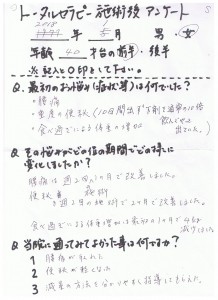 トータルセラピー施術後アンケート
2018
年 5月 男・女
年齢 40 才台の前半・後半
※記入と○印をして下さい。
Q 最初のお悩み(症状等)は何でした?
・腰痛
・重度の便秘(10日間出ず下剤で通常の10倍
飲んでやっと
出ていた。)
・食べ過ぎによる体重の増加
Q そのお悩みがどの位の期間でどの様に
変化しましたか?
腰痛は週2回の1ヶ月で改善しました。
便秘 施術
週2回の施術で2ヶ月で改善しました。
食べ過ぎによる体重増加は最初の1ヶ月で4kg
減りました
Q 当院に通ってみてよかった事は何ですか?
1 腰痛がとれた
2 便秘が軽くなった
3 減量の方法を分かりやすく指導してもらえた